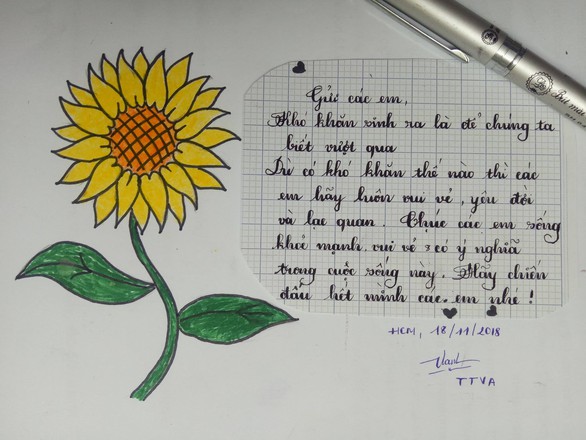 Gửi các em,
Khó khăn sinh ra là để chúng ta
biết vượt qua
Dù có khó khăn thế nào thì các
em hãy luôn vui vẻ, yêu đời
và lạc quan. Chúc các em sống
khỏe mạnh, vui vẻ và có ý nghĩa
trong cuộc sống này. Hãy chiến
đấu hết mình các em nhé!
HCM, 18/11/2018
TTVA